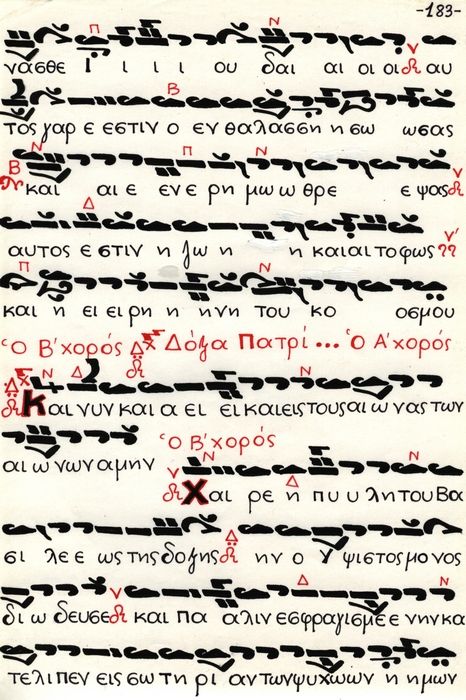 -183-
νασθε Ι ι ι ι ου δαι αι οι οι αυ
τος γαρ ε εστιν ο εν θαλασση η σω ωσας
και αι ε εν ε ρη μω ω θρε ε ψας
αυτος ε στιν η ζω η η και αι το φως
και η ει ει ρη η νη του κο οσμου
Ὁ Β΄ χορός Δόξα Πατρί... Ὁ Α΄ χορός
Και νυν και α ει ει και εις τους αι ω νας των
αι ω νων α μην Ὁ Β΄ χορός
Χαι ρε η πυ υ λη του Βα
σι λε ε ως της δοξης ην ο Υ ψιστος μονος
δι ω δευσε και πα αλιν εσφραγισμε ε νην κα
τελιπεν εις σω τη ρι αν των ψυχω ων η ημων